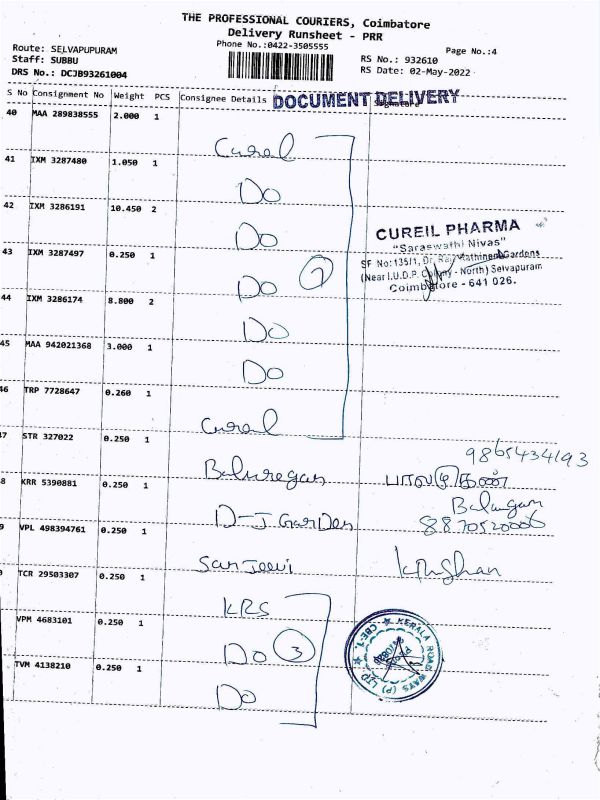 THE PROFESSIONAL COURIERS, Coimbatore
Delivery Runsheet - PRR
Phone No.:0422-3505555
Page No.:4
Route: SELVAPUPURAM
Staff: SUBBU
DRS No.: DCJB93261004
RS No.: 932610
RS Date: 02-May-2022
S No Consignment No Weight PCS Consignee Details
DOCUMENT DELIVERY
40 MAA 289838555 2.000 1
Cural
41 IXM 3287480 1.050 1
Do
42 IXM 3286191 10.450 2
Do
CUREIL PHARMA
"Saraswathi Nivas"
SF No:135/1, Dr. Rathinam Gardens
(Near I.U.D.P. Colony - North) Selvapuram
Coimbatore - 641 026.
43 IXM 3287497 0.250 1
Do 7
44 IXM 3286174 8.800 2
Do
45 MAA 942021368 3.000 1
Do
46 TRP 7728647 0.260 1
Cural
9865434193
47 STR 327022 0.250 1
Balmregan
பாலமுருகன்
8 KRR 5390881 0.250 1
D-J Garden
8870520006
9 VPL 498394761 0.250 1
Sanjeevi
TCR 29503307 0.250 1
KRS
VPM 4683101 0.250 1
Do 3
KERALA ROADWAYS (P) LTD
CBE-1
TVM 4138210 0.250 1
Do